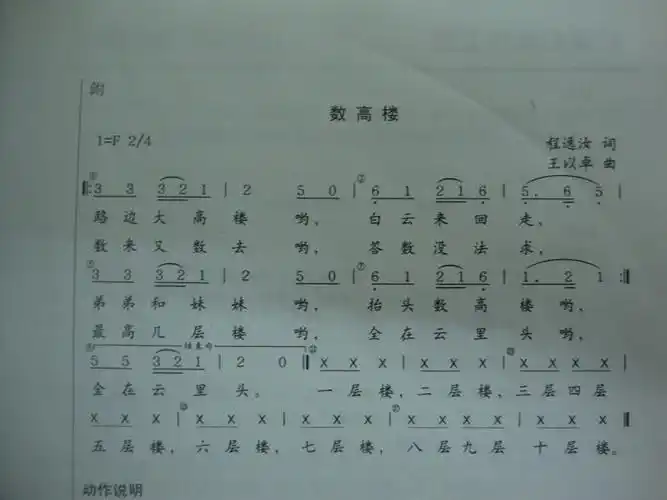 数高楼
1=F 2/4
程选汝 词
王以卓 曲
3 3 3 2 1 | 2 5 0 | 6 1 2 1 6 | 5. 6 5 |
路边大高楼 哟, 白云来回走,
数来又数去 哟, 答数没法求,
3 3 3 2 1 | 2 5 0 | 6 1 2 1 6 | 1. 2 1 :||
弟弟和妹妹 哟, 抬头数高楼哟,
最高几层楼 哟, 全在云里头哟,
结束句
5 5 3 2 1 | 2 0 || X X X | X X X | X X X X
全在云里头。 一层楼,二层楼,三层四层
X X X | X X X | X X X | X X X X | X X X ||
五层楼,六层楼,七层楼,八层九层十层楼。
动作说明